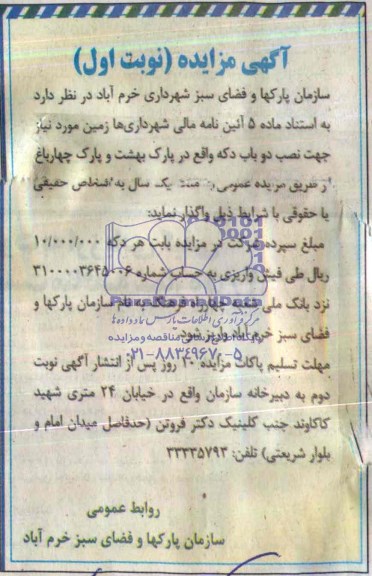 آگهی مزایده (نوبت اول)
سازمان پارکها و فضای سبز شهرداری خرم آباد در نظر دارد
به استناد ماده ۵ آئین نامه مالی شهرداری‌ها زمین مورد نیاز
جهت نصب دو باب دکه واقع در پارک بهشت و پارک چهارباغ
از طریق مزایده عمومی به مدت یک سال به اشخاص حقیقی
یا حقوقی با شرایط ذیل واگذار نماید:
مبلغ سپرده شرکت در مزایده بابت هر دکه ۱۰/۰۰۰/۰۰۰
ریال طی فیش واریزی به حساب شماره
نزد بانک ملی شعبه چهارراه فرهنگ به نام سازمان پارکها و
فضای سبز خرم آباد واریز شود
مهلت تسلیم پاکات مزایده ۱۰ روز پس از انتشار آگهی نوبت
دوم به دبیرخانه سازمان واقع در خیابان ۲۴ متری شهید
کاکاوند جنب کلینیک دکتر فروتن (حدفاصل میدان امام و
بلوار شریعتی) تلفن: ۳۳۲۳۵۷۹۳
روابط عمومی
سازمان پارکها و فضای سبز خرم آباد
مرکز فرآوری اطلاعات پارس نماد داده‌ها
پایگاه اطلاع رسانی مناقصه و مزایده
۰۲۱-۸۸۳۴۹۶۷۰-۵